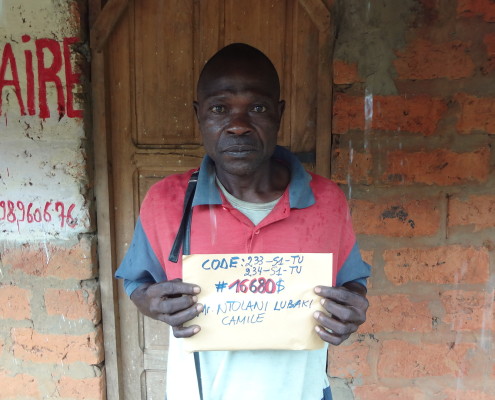 AiRE
98960676
CODE: 233-S1-TU
234-S1-TU
# 16680$
Mr NTOLANI LUBAKI
CAMILE